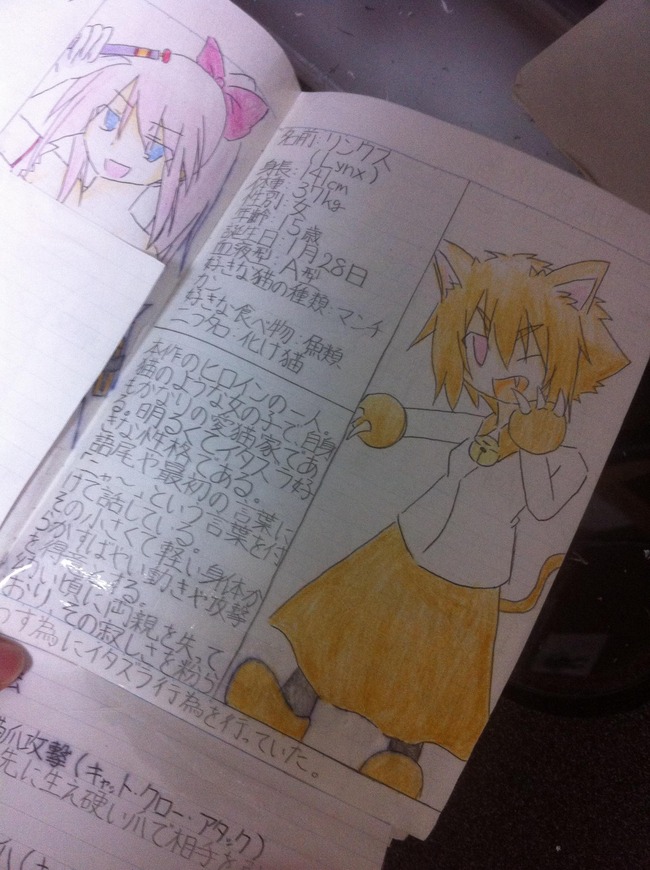 名前:リンクス
(Lynx)
身長:141cm
体重:37kg
性別:女
年齢:15歳
誕生日:1月28日
血液型:A型
好きな猫の種類:マンチ
カン
好きな食べ物:魚類
二つ名:化け猫
本作のヒロインの一人。
猫のような女の子で、自身
もかなりの愛猫家であ
る。明るくてイタズラ好
きな性格である。
語尾や最初の言葉に
「にゃ〜」という言葉を付
けて話している。
その小さくて軽い身体か
らかすばやい動きや攻撃
を得意とする。
幼い頃に両親を失って
おり、その寂しさを粉ら
わす為にイタズラ行為を行っていた。
猫爪攻撃(キャット・クロー・アタック)
先に生え硬い爪で相手を